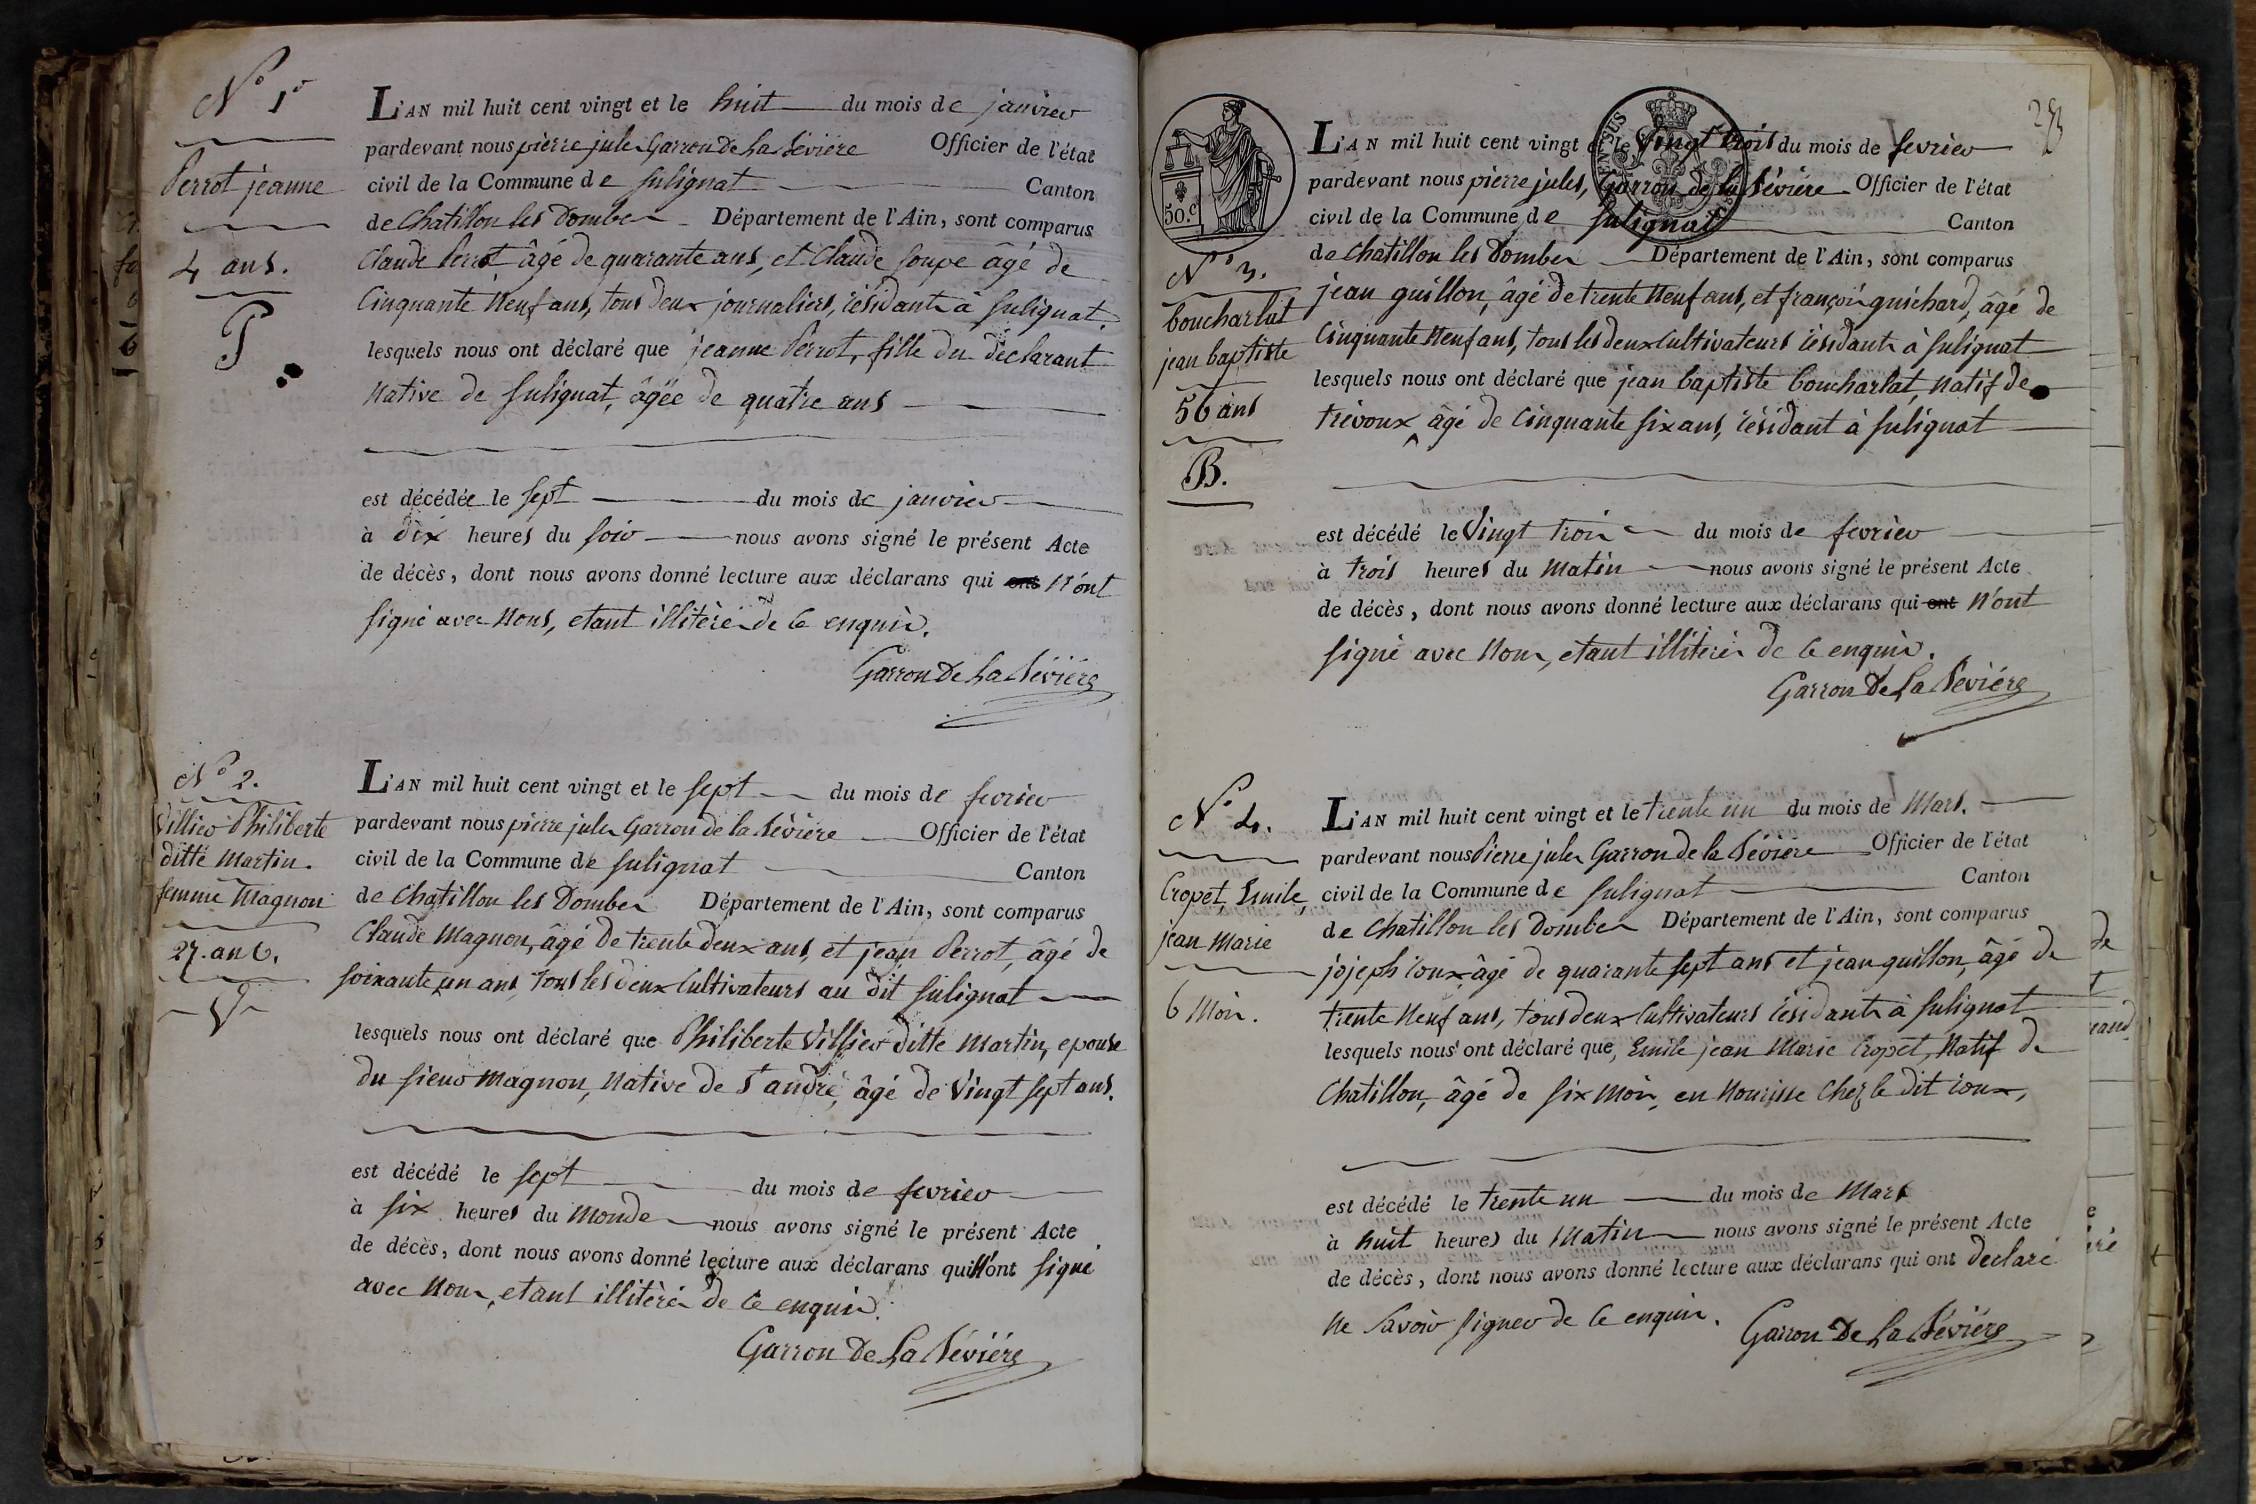 N° 1er
Perrot jeanne
4 ans.
P
L'AN mil huit cent vingt et le huit du mois de janvier
pardevant nous pierre jules Garron de la Bévière Officier de l'état
civil de la Commune de Sulignat Canton
de Chatillon les Dombes Département de l'Ain, sont comparus
Claude Perrot âgé de quarante ans, et Claude Soupe âgé de
Cinquante Neuf ans, tous deux journaliers, résidants à Sulignat.
lesquels nous ont déclaré que jeanne Perrot, fille du déclarant
Native de Sulignat, âgée de quatre ans
est décédée le sept du mois de janvier
à dix heures du soir nous avons signé le présent Acte
de décès, dont nous avons donné lecture aux déclarans qui ont n'ont
signé avec Nous, etant illitérés de ce enquis.
Garron De La Bévière
N° 2.
Villier Philiberte
ditte Martin.
femme Magnon
27. ans.
V
L'AN mil huit cent vingt et le sept du mois de fevrier
pardevant nous pierre jules Garron de la Bévière Officier de l'état
civil de la Commune de Sulignat Canton
de Chatillon les Dombes Département de l'Ain, sont comparus
Claude Magnon, âgé de trente deux ans, et jean Perrot, âgé de
soixante un ans, tous les deux Cultivateurs au dit Sulignat
lesquels nous ont déclaré que Philiberte Villier ditte Martin, epouse
du sieur Magnon, Native de St andré, âgé de Vingt sept ans.
est décédé le sept du mois de fevrier
à six heures du Monde nous avons signé le présent Acte
de décès, dont nous avons donné lecture aux déclarans qui N'ont signé
avec Nous, etant illitérés de ce enquis.
Garron De La Bévière
50.c
N° 3.
boucharlat
jean baptiste
56 ans
B.
L'AN mil huit cent vingt et le Vingt trois du mois de fevrier
pardevant nous pierre jules, Garron de la Bévière Officier de l'état
civil de la Commune de Sulignat Canton
de Chatillon les Dombes Département de l'Ain, sont comparus
jean guillon, âgé de trente Neuf ans, et françois guichard, âgé de
Cinquante Neuf ans, tous les deux Cultivateurs résidants à Sulignat
lesquels nous ont déclaré que jean baptiste boucharlat, Natif de
trévoux âgé de Cinquante six ans, résidant à Sulignat
est décédé le Vingt trois du mois de fevrier
à trois heures du Matin nous avons signé le présent Acte
de décès, dont nous avons donné lecture aux déclarans qui ont N'ont
signé avec Nous, etant illitérés de ce enquis.
Garron De La Bévière
N° 4.
Cropet, Emile,
jean Marie
6 Mois.
L'AN mil huit cent vingt et le trente un du mois de Mars.
pardevant nous Pierre jules Garron de la Bévière Officier de l'état
civil de la Commune de Sulignat Canton
de Chatillon les Dombes Département de l'Ain, sont comparus
jojeph ioux, âgé de quarante sept ans et jean guillon, âgé de
trente Neuf ans, tous deux Cultivateurs résidants à Sulignat
lesquels nous ont déclaré que, Emile jean Marie Cropet, Natif de
Chatillon, âgé de six Mois, en Nourisse Chez le dit ioux,
est décédé le trente un du mois de Mars
à huit heures du Matin nous avons signé le présent Acte
de décès, dont nous avons donné lecture aux déclarans qui ont declaré
Ne Savoir signer de ce enquis.
Garron De La Bévière